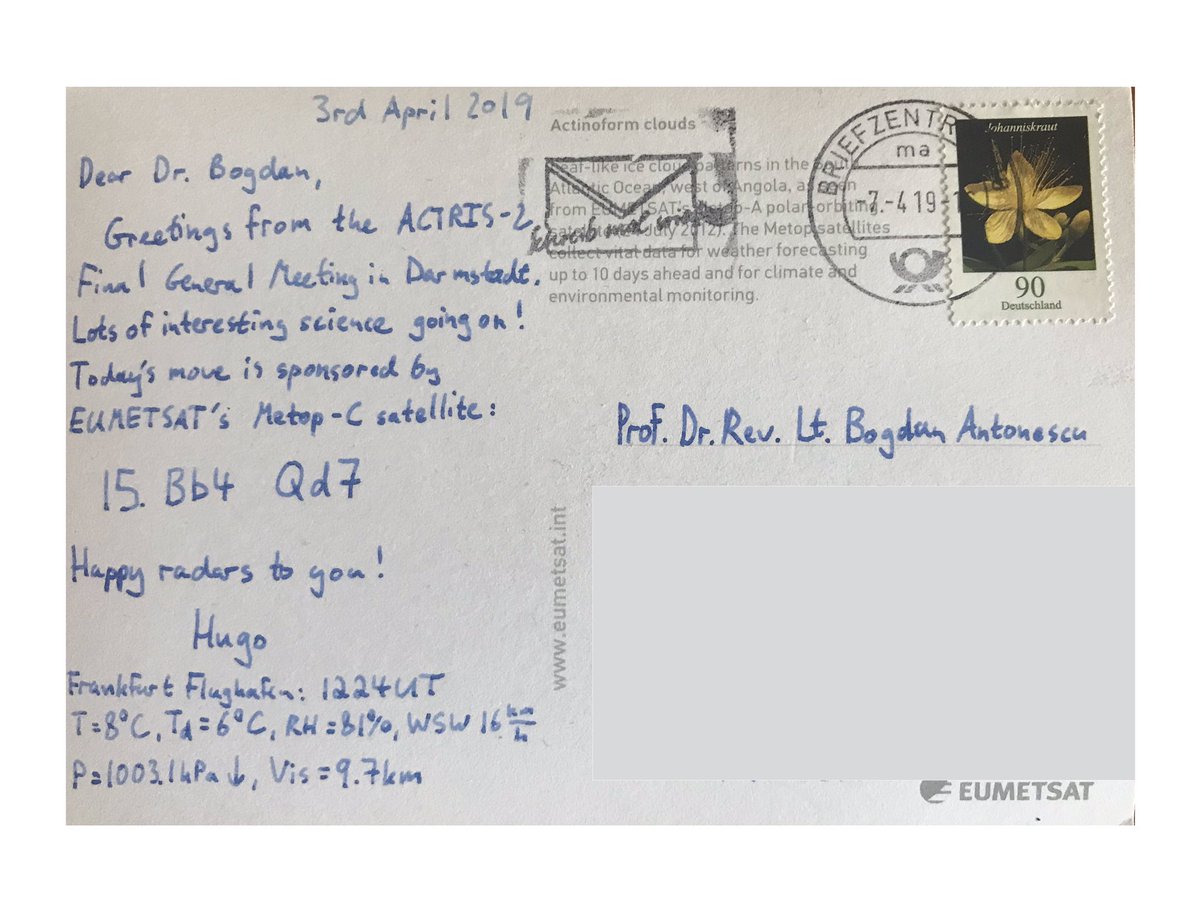 3rd April 2019
Dear Dr. Bogdan,
Greetings from the ACTRIS-2
Final General Meeting in Darmstadt.
Lots of interesting science going on!
Today's move is sponsored by
EUMETSAT's Metop-C satellite:
15. Bb4 Qd7
Happy radars to you!
Hugo
Frankfurt Flughafen: 1224UT
T=8°C, Td=6°C, RH=81%, WSW 16 km/h
P=1003.1hPa↓, Vis=9.7km
Actinoform clouds
Leaf-like ice cloud patterns in the South
Atlantic Ocean, west of Angola, as seen
from EUMETSAT's Metop-A polar-orbiting
July 2012). The Metop satellites
collect vital data for weather forecasting
up to 10 days ahead and for climate and
environmental monitoring.
Schreib mal
BRIEFZENTR
ma
-7.-4 19-1
Johanniskraut
90
Deutschland
Prof. Dr. Rev. Lt. Bogdan Antonescu
www.eumetsat.int
EUMETSAT